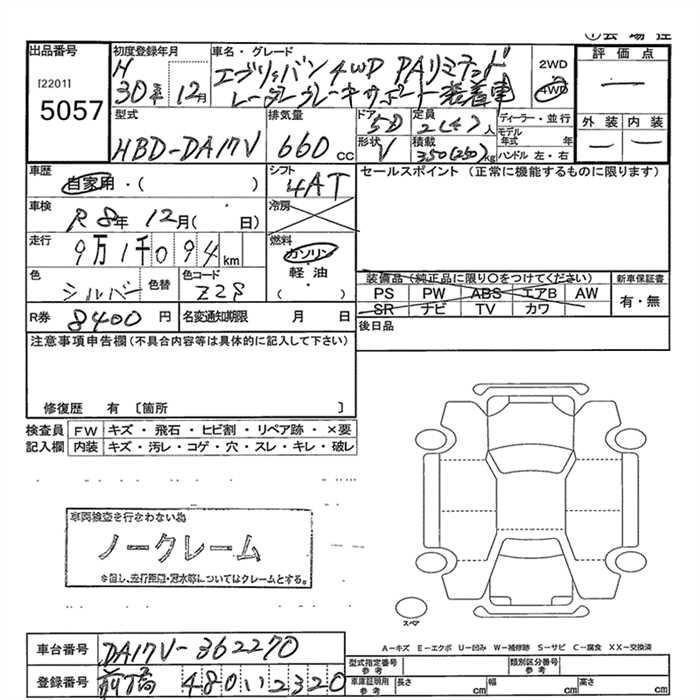 ①会場控
出品番号
[2201]
5057
初度登録年月
H
30年 12月
車名・グレード
エブリィバン 4WD PAリミテッド
レーダーブレーキサポート装着車
2WD
4WD
評価点
—
外装 内装
— —
型式
HBD-DA17V
排気量
660 cc
ドア
5D
定員
2(4)人
ディーラー・並行
モデル年式 年
形状
V
積載
350(250)kg
ハンドル 左・右
車歴
自家用・( )
シフト
4AT
セールスポイント (正常に機能するものに限ります)
車検
R8年 12月( 日)
冷房
走行
9万1千094km
燃料
ガソリン
軽油
( ・ )
色
シルバー
色替
色コード
Z2S
装備品(純正品に限り○をつけてください)
PS PW ABS エアB AW
SR ナビ TV カワ
新車保証書
有・無
R券 8400 円
名変通知期限 月 日
後日品
注意事項申告欄(不具合内容等は具体的に記入して下さい)
修復歴 有 〔箇所 〕
検査員記入欄
FW キズ・飛石・ヒビ割・リペア跡・×要
内装 キズ・汚レ・コゲ・穴・スレ・キレ・破レ
車両検査を行なわない為
ノークレーム
※但し、走行距離・冠水等についてはクレームとする。
スペア
A−キズ E−エクボ U−凹み W−補修跡 S−サビ C−腐食 XX−交換済
車台番号 DA17V-362270
登録番号 前橋 480 い 2320
型式指定番号 参考
類別区分番号 参考
車庫証明用 参考
長さ cm
幅 cm
高さ cm